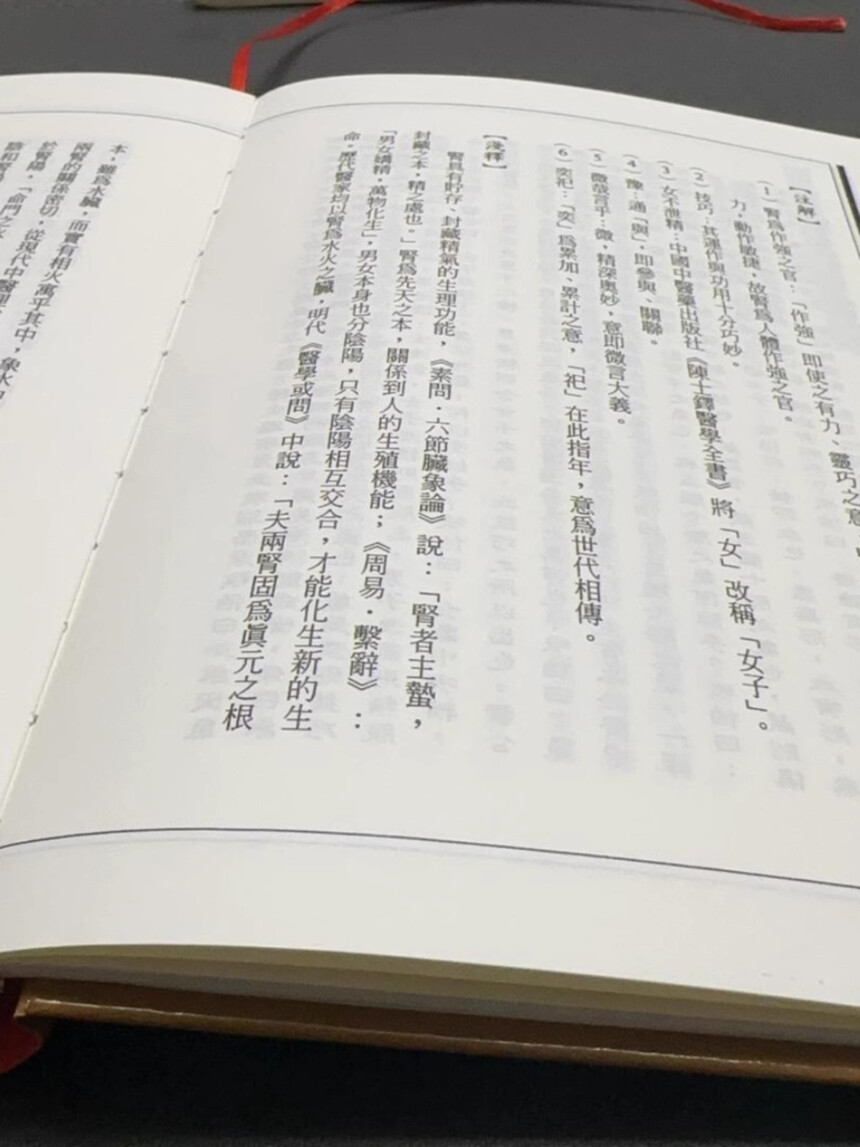 【註解】
(1) 腎爲作強之官：「作強」即使之有力、靈巧之意，
力，動作敏捷，故腎爲人體作強之官。
(2) 技巧：其運作與功用十分巧妙。
(3) 女不泄精：中國中醫藥出版社《陳士鐸醫學全書》將「女」改稱「女子」。
(4) 豫：通「與」，即參與、關聯。
(5) 微哉言乎：微，精深奧妙，意即微言大義。
(6) 奕祀：「奕」爲累加、累計之意，「祀」在此指年，意爲世代相傳。
【淺釋】
腎具有貯存、封藏精氣的生理功能，《素問．六節臟象論》說：「腎者主蟄，
封藏之本，精之處也。」腎爲先天之本，關係到人的生殖機能；《周易．繫辭》：
「男女媾精，萬物化生」，男女本身也分陰陽，只有陰陽相互交合，才能化生新的生
命。歷代醫家均以腎爲水火之臟，明代《醫學或問》中說：「夫兩腎固爲眞元之根
本，雖爲水臟，而實有相火寓乎其中，象水中
兩腎的關係密切，從現代中醫理
於腎陽，「命門之水